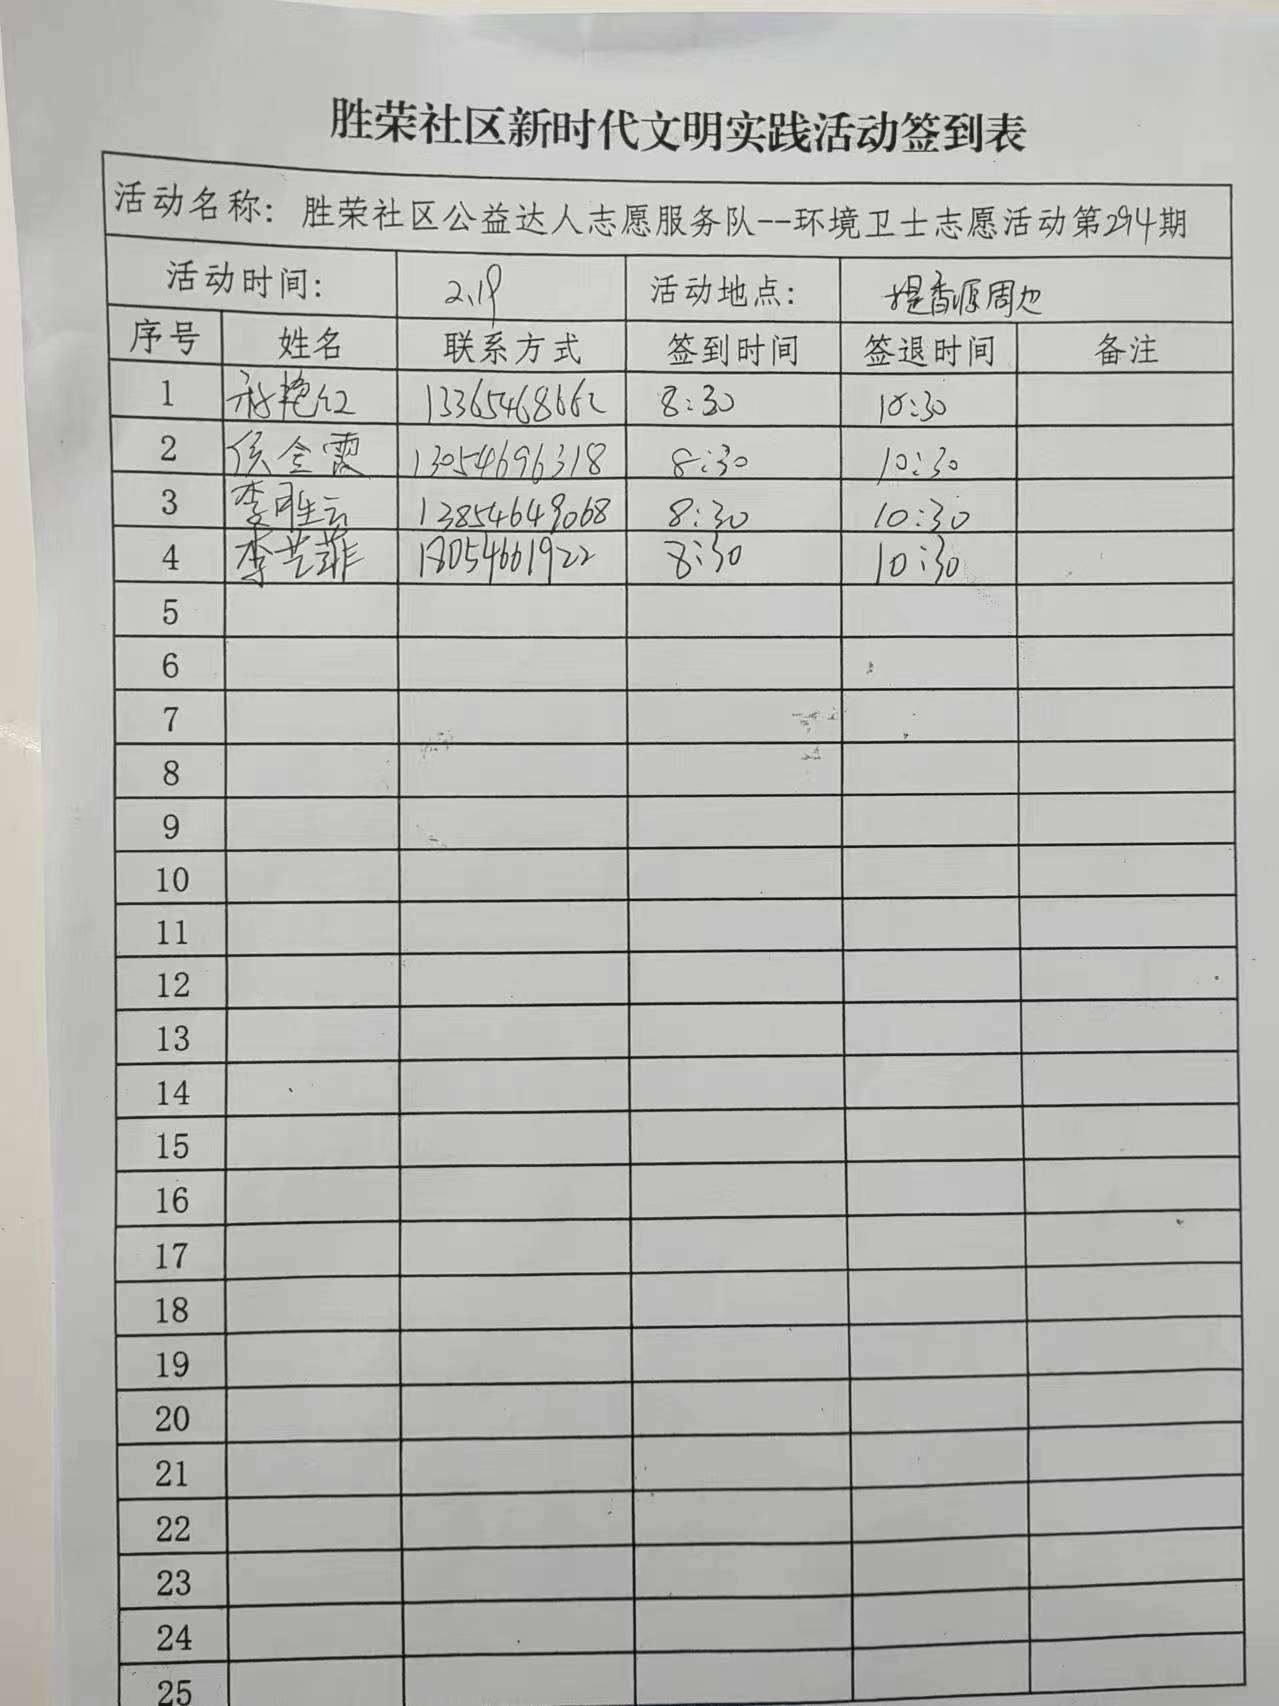 胜荣社区新时代文明实践活动签到表
活动名称：胜荣社区公益达人志愿服务队--环境卫士志愿活动第294期
活动时间： 2.19 活动地点： 提香源周边
序号 姓名 联系方式 签到时间 签退时间 备注
1 艳红 13365468662 8:30 10:30
2 侯金霞 13054696318 8:30 10:30
3 李胜云 13854649068 8:30 10:30
4 李芸菲 18054661922 8:30 10:30
5
6
7
8
9
10
11
12
13
14
15
16
17
18
19
20
21
22
23
24
25